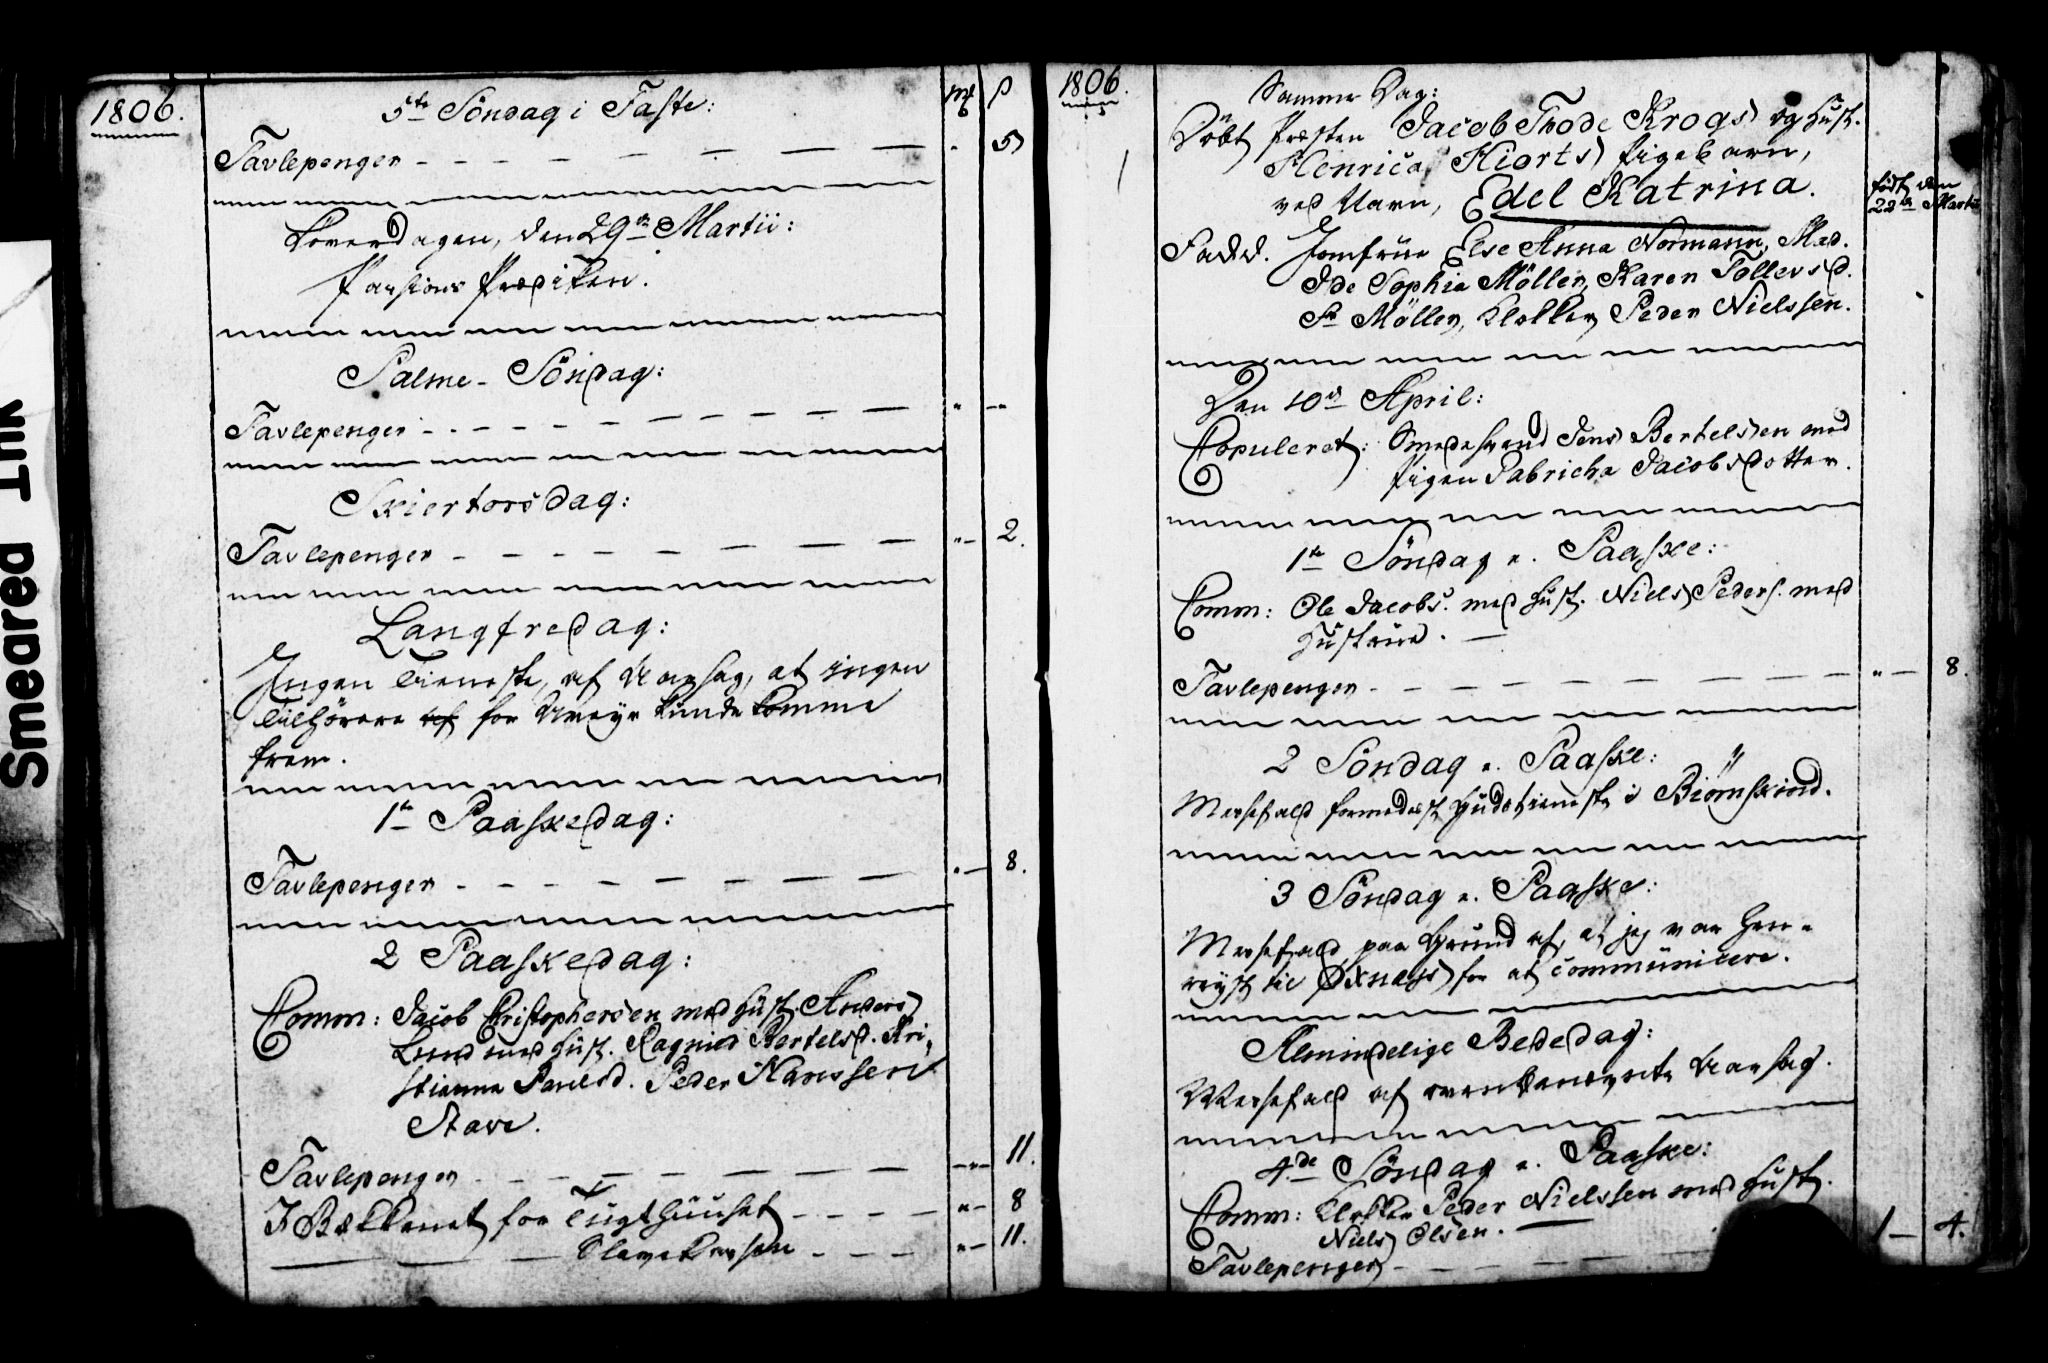 Smeared Ink
1806.
5te Söndag i Faste:
mk ß
Tavlepenger - - - - - - - 5
Löverdagen, den 29de Martii:
Passions Prædiken.
Palme-Söndag:
Tavlepenger - - - - - - - " -
Skiertorsdag:
Tavlepenger - - - - - - - " - 2.
Langfredag:
Ingen Tieneste, af Aarsag, at ingen
Tilhörere for Uveyr kunde komme
frem.
1te Paaskedag:
Tavlepenger - - - - - - - " - 8.
2 Paaskedag:
Comm: Jacob Christophersen med Hust. Anders
Lund med Hust. Ragnild Bertelsd. Kri-
stianna Paulsd. Peder Hanssen
Stave.
Tavlepenger - - - - - - - " - 11.
I Bekkenet for Tugthuuset - - - - " - 8
— — — Slavekassen - - - " - 11.
1806.
Samme Dag:
1 Döbt Præsten Jacob Thode Krogs og Hust.
Henrica Hiorts Pigebarn,
ved Navn, Edel Katrina.
födt den
22de Martii
Fadd. Jomfrue Else Anna Normann, Mad.
Ide Sophia Möller, Karen Tollevsd.
Sr Möller, Klokker Peder Nielssen.
Den 10de April:
Copuleret: Jens Bertelsen med
Pigen Fabricha Jacobsdotter.
1te Söndag e. Paaske:
Comm: Ole Jacobs. med Hust. Niels Peders. med
Hustrue. —
Tavlepenger - - - - - - - " - 8.
2 Söndag e. Paaske:
Messefald formedelst Gudstieneste i Biörnskind.
3 Söndag e. Paaske:
Messefald paa Grund af, at jeg var hen-
reyst til Øxnæs for at communicere.
Almindelige Bededag:
Messefald af ovenbenævnte Aarsag.
4de Söndag e. Paaske:
Comm: Klokker Peder Nielssen med Hust.
Niels Olsen. —
Tavlepenger - - - - 1 - 4.